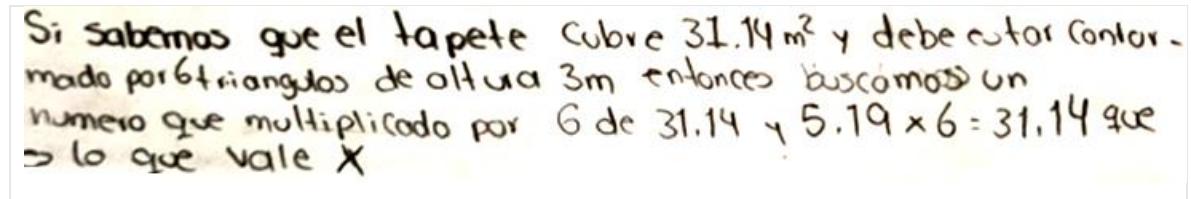 Si sabemos que el tapete cubre 31.14 m² y debe estar confor-
mado por 6 triangulos de altura 3m entonces buscamos un
numero que multiplicado por 6 de 31.14 y 5.19 x 6 = 31.14 que
es lo que vale X